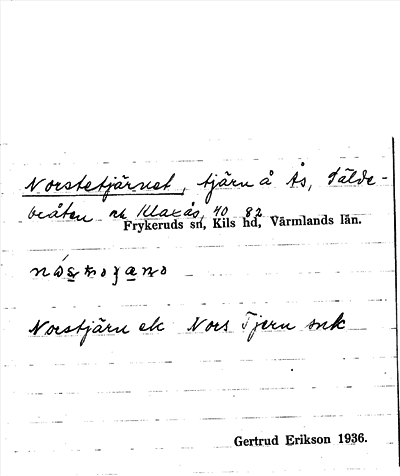 Norstetjärnet, tjärn å Ås, Tälde-
bråten o. Klaxås, 40 82
Frykeruds sn, Kils hd, Värmlands län.
Norstjärn ek Nors Tjern snk
Gertrud Erikson 1936.